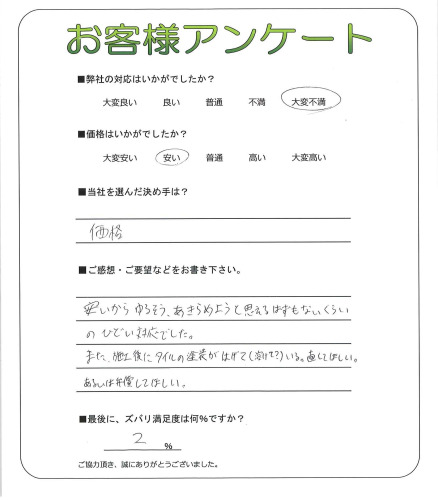 お客様アンケート
■弊社の対応はいかがでしたか？
大変良い 良い 普通 不満 大変不満
■価格はいかがでしたか？
大変安い 安い 普通 高い 大変高い
■当社を選んだ決め手は？
価格
■ご感想・ご要望などをお書き下さい。
安いから ゆるそう、あきらめようと思えるはずもないくらい
の ひどい対応でした。
また、施工後にタイルの塗装がはげて(溶けて?)いる。直してほしい。
あるいは弁償してほしい。
■最後に、ズバリ満足度は何%ですか？
2 %
ご協力頂き、誠にありがとうございました。